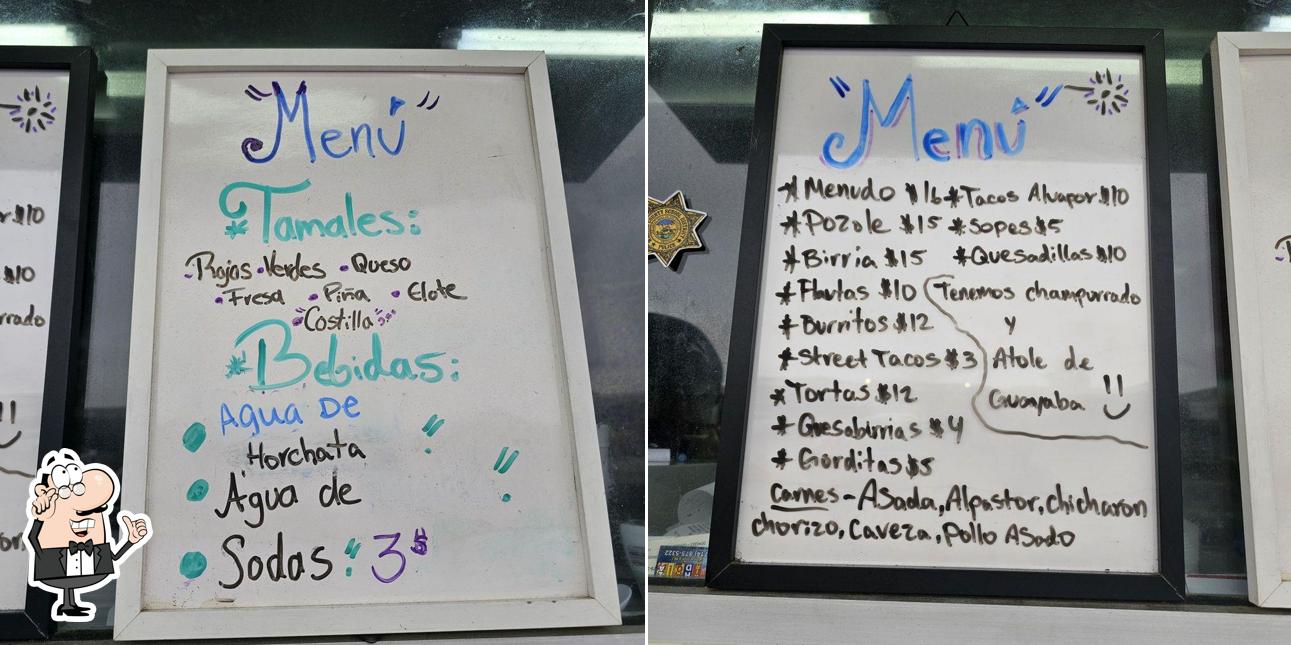 "Menú"
* Tamales:
Rojas • Verdes • Queso
• Fresa • Piña • Elote
"Costilla"
* Bebidas:
• Agua De
Horchata
• Agua de
• Sodas 3$
r $10
$10
rrado
"Menú"
* Menudo $16 * Tacos Alvapor $10
* Pozole $15 * Sopes $5
* Birria $15 * Quesadillas $10
* Flautas $10
* Burritos $12
* Street Tacos $3
* Tortas $12
* Quesabirrias $4
* Gorditas $5
Tenemos champurrado
y
Atole de
Guayaba !!
Carnes - Asada, Alpastor, chicharon
chorizo, Caveza, Pollo Asado